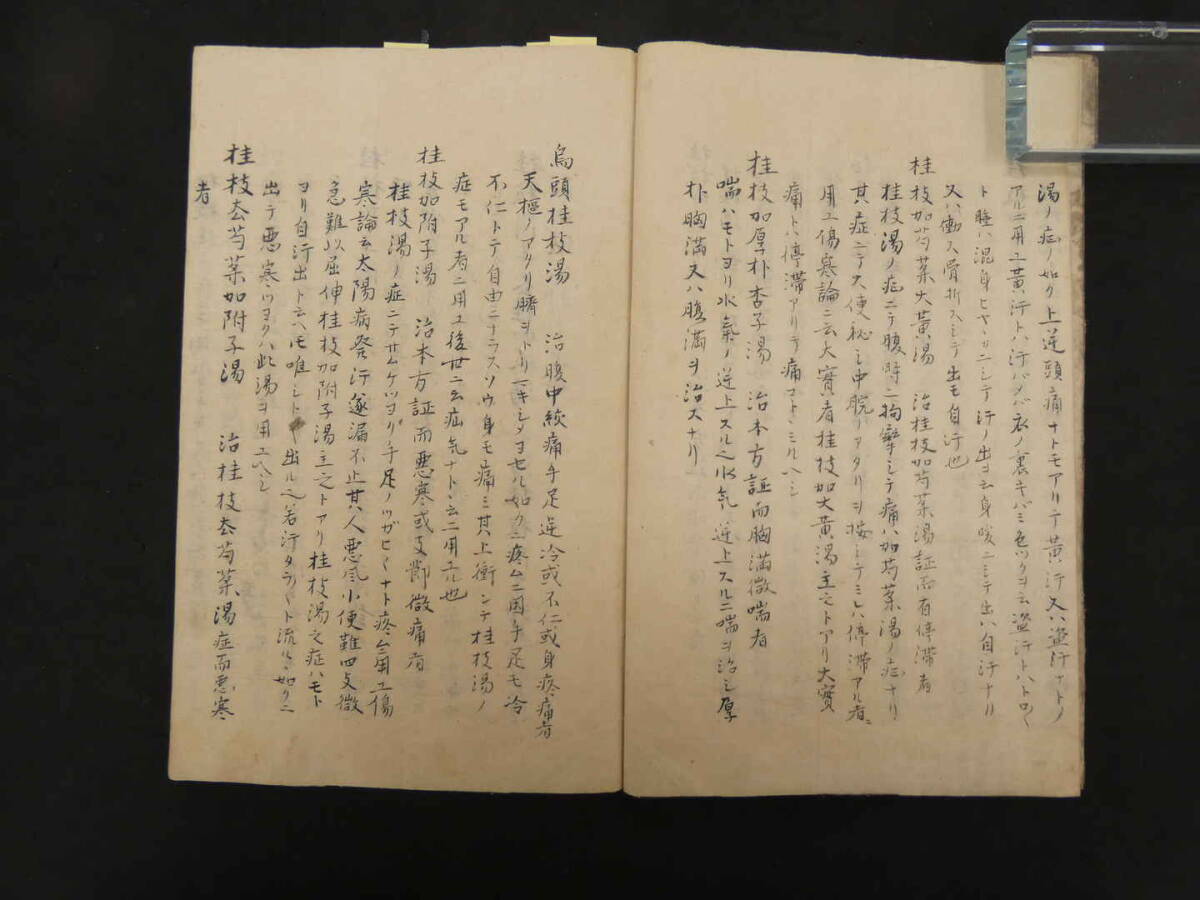 湯ノ症ノ如ク上逆頭痛ナトモアリテ黄汗又ハ盗汗ナトノ
アルニ用ユ黄汗トハ汗バメバ衣ノ裏キバミ色ツクヲ云盗汗トハトロ〱
ト睡ハ混身ヒヤ〱ニシテ汗ノ出ヨ云身暖ニシテ出ハ自汗ナリ
又ハ働ス骨折スシテ出モ自汗也
桂枝加芍薬大黄湯　治桂枝加芍薬湯証而有停滞者
桂枝湯ノ症ニテ腹時ニ拘攣シテ痛ハ加芍薬湯ノ症ナリ
其症ニテ大便秘シ中脘ノアタリヲ按シテミレハ停滞アル者ニ
用ユ傷寒論ニ云大實者桂枝加大黄湯主之トアリ大實
痛トハ停滞アリテ痛コトミルヘシ
桂枝加厚朴杏子湯　治本方証而胸満微喘者
喘ハモトヨリ水氣ノ逆上スル之水気ノ逆上スルニ喘ヲ治シ厚
朴胸満又ハ腹満ヲ治スナリ
烏頭桂枝湯　治腹中絞痛手足逆冷或不仁或身疼痛者
天樞ノアタリ臍ヲトリマキシメヨセル如クニ疼ムニ因手足モ冷
不仁トテ自由ニナラスソウ身モ痛ミ其上衝シテ桂枝湯ノ
症モアル者ニ用ユ後世ニ云疝気ナトニ云ニ用テ凡也
桂枝加附子湯　治本方証而悪寒或支節微痛者
桂枝湯ノ症ニテサムケツヨク手足ノツガヒ〱ナト疼ムニ用ユ傷
寒論云太陽病発汗遂漏不止其人悪風小便難四支微
急難以屈伸桂枝加附子湯主之トアリ桂枝湯之症ハモト
ヨリ自汗出ト云ヘモ唯シト〱出ル之若汗タラ〱ト流ルヽ如クニ
出テ悪寒ツヨクハ此湯ヲ用ユヘシ
桂枝去芍薬加附子湯　治桂枝去芍薬湯症而悪寒
者